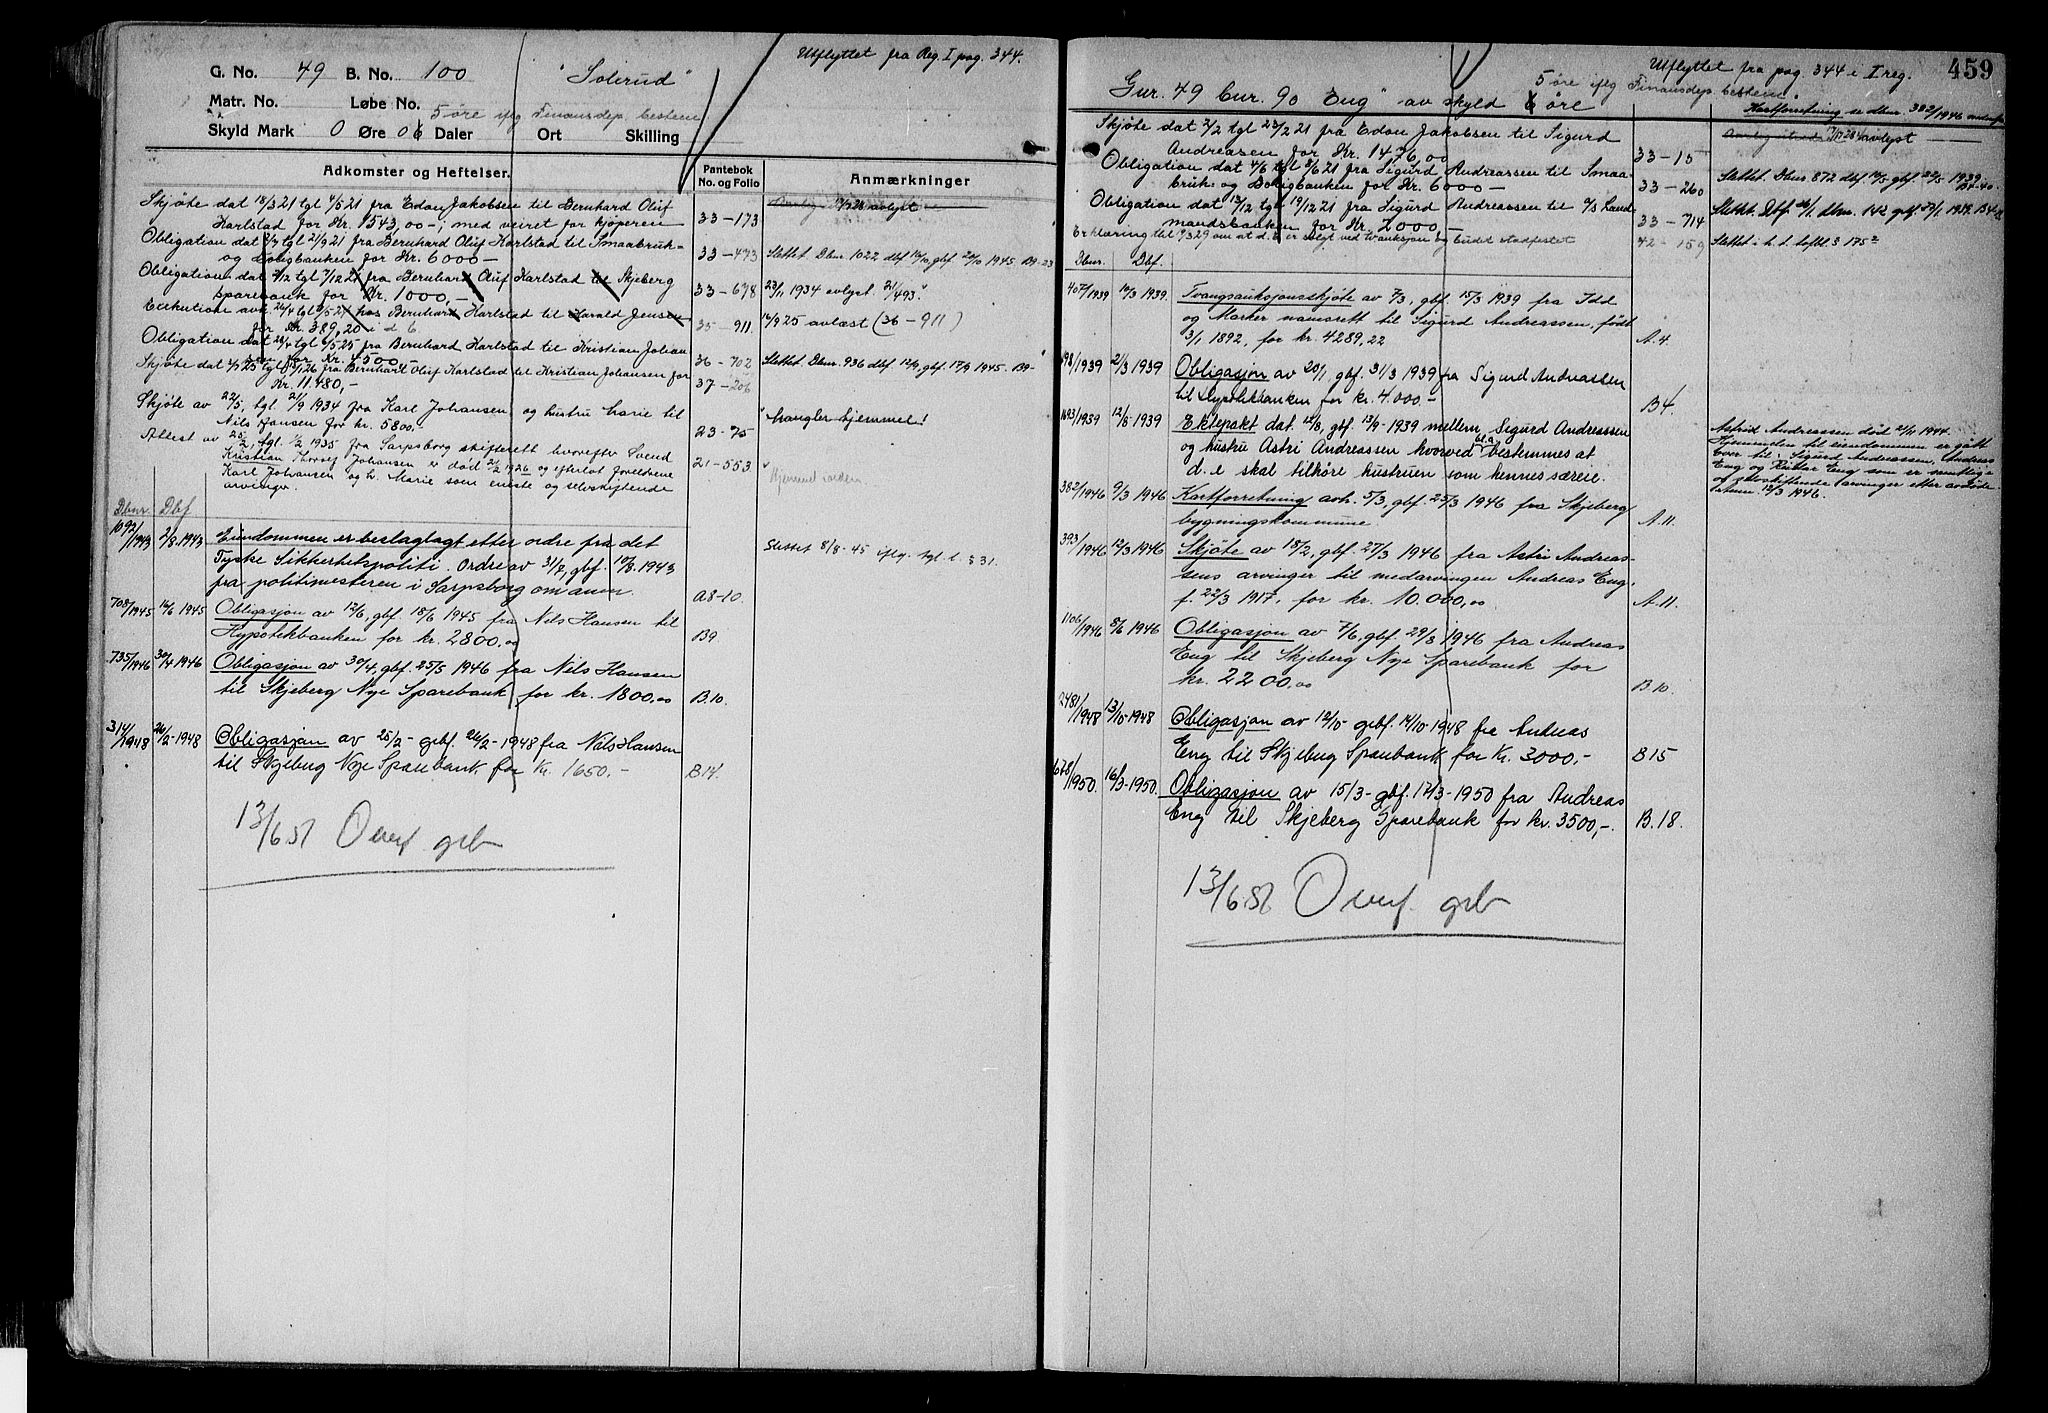 Utflyttet fra Reg. I pag. 344.
G. No. 49 B. No. 100 "Solerud"
Matr. No. Løbe No.
5 øre iflg Finansdep. bestem
Skyld Mark 0 Øre 06 Daler Ort Skilling
Adkomster og Heftelser. Pantebok No. og Folio Anmærkninger
Skjøte dat 18/3 21 tgl 4/5 21 fra Edon Jakobsen til Bernhard Oluf
Karlstad for Kr. 1543,00 -, med veiret for kjøperen 33-173 avlyst
Obligation dat tgl 2/9 21 fra Bernhard Oluf Karlstad til Smaabruk-
og Boligbanken for Kr. 6000 - 33-473 Slettet Dbnr 1022 dbf 19/10, gbf 20/10 1945. B9-
Obligation dat 2/12 tgl 7/12 21 fra Bernhard Oluf Karlstad til Skjeberg
Sparebank for Kr. 1000,- 33-678 23/11 1934 avlyst 21/493.
tgl hos Bernhard Karlstad til Harald Jensen
for Kr. 389,20 i d 6 35-911. 16/9 25 avlæst (36-911)
Obligation dat tgl 6/5 25 fra Bernhard Karlstad til Kristian Johan
sen for Kr. 4500,- 36-702 Slettet Dbnr. 936 dbf 12/9, gbf 17/9 1945. B9-
Skjøte dat tgl fra Bernhart Oluf Karlstad til Kristian Johansen for
Kr. 11.480,- 37-206
Skjøte av 22/5, tgl. 21/9 1934 fra Karl Johansen og hustru Marie til
Nils Hansen for kr. 5800. 23-75 "Mangler hjemmel!
Attest av 25/2, tgl. 1/2 1935 fra Sarpsborg skifterett hvorefter Svend
Kristian Thorleif Johansen er død 2/2 1926 og efterlot foreldrene
Karl Johansen og h. Marie som eneste og selvskiftende
arvinger. 21-553 Hjemmel i orden.
Dbnr. Dbf
1092/1943 2/8.1943 Eiendommen er beslaglagt etter ordre fra det
Tyske Sikkerhetspoliti. Ordre av 31/7, gbf. 10/8.1943
fra politimesteren i Sarpsborg om anm. A8-10. Slettet 8/8-45 iflg. tgl. l. § 31.
708/1945 16/6 1945 Obligasjon av 12/6, gbf 18/6 1945 fra Nils Hansen til
Hypotekbanken for kr. 2800,00 B9
735/1946 30/4 1946 Obligasjon av 30/4, gbf. 25/5 1946 fra Nils Hansen
til Skjeberg Nye Sparebank for kr. 1800,00 B.10.
314/1948 26/2-1948 Obligasjon av 25/2- gbf. 26/2-1948 fra Nils Hansen
til Skjeberg Nye Sparebank for Kr. 1650,- B14.
13/6 51 Overf. grb
459
Utflyttet fra pag. 344 i I reg.
5 øre iflg Finansdep. bestem.
Gnr. 49 bnr. 90 "Eng" av skyld 6 øre
Kartforretning se dbnr. 382/1946
Skjøte dat 2/2 tgl 23/2 21 fra Edon Jakobsen til Sigurd
Andreasen for Kr. 1476,00 33-15 avlyst
Obligation dat 4/6 tgl 8/6 21 fra Sigurd Andreassen til Smaa-
bruk- og Boligbanken for Kr. 6000 - 33-260 Slettet. Dbnr 872 dbf gbf. 1939
Obligation dat 17/12 tgl 19/12 21 fra Sigurd Andreassen til A/S Land
mandsbanken for Kr. 2000,- 33-714 Slettet. Dbf. dbnr. 142 gbf. 27/1 1939. B4
Erklæring tgl 1/3 29 om at d. e. er solgt ved tv. auksjon og budet stadfestet 42-159
Dbnr. Dbf.
407/1939 10/3 1939. Tvangsauksjonsskjøte av 7/3, gbf. 15/3 1939 fra Idd
og Marker namsrett til Sigurd Andreassen, født
3/1 1892, for kr. 4289,22 A.4.
498/1939 21/3 1939 Obligasjon av 20/1, gbf. 31/3 1939 fra Sigurd Andreassen
til Hypotekbanken for kr. 4.000.- B4.
1493/1939 12/9 1939 Ektepakt dat. 12/8, gbf. 13/9-1939 mellem Sigurd Andreassen
og hustru Astri Andreassen hvorved bl.a. bestemmes at
d. e skal tilhøre hustruen som hennes særeie.
Astrid Andreassen død 21/11 1944.
Hjemmelen til eiendommen er gått
over til: Sigurd Andreassen, Andreas
Eng og Reidar Eng som er
og selvskiftende arvinger etter avdøde
12/3 1946.
382/1946 9/3 1946 Kartforretning avh. 5/3, gbf. 25/3 1946 fra Skjeberg
bygningskommune. A.11.
393/1946 12/3 1946 Skjøte av 18/2, gbf. 27/3 1946 fra Astri Andreas-
sens arvinger til medarvingen Andreas Eng.
f. 22/3 1917, for kr. 10.000,00 A.11.
1106/1946 8/6 1946 Obligasjon av 7/6, gbf. 29/8 1946 fra Andreas
Eng til Skjeberg Nye Sparebank for
kr. 2200,00 B.10.
2481/1948 13/10-1948 Obligasjon av 12/10 gebf. 14/10-1948 fra Andreas
Eng til Skjeberg Sparebank for Kr. 3000,- B15
678/1950. 16/3-1950. Obligasjon av 15/3- gbf. 17/3-1950 fra Andreas
Eng til Skjeberg Sparebank for kr. 3500,-. B.18.
13/6 51 Overf. grb